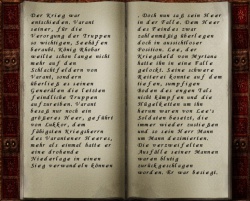 Der Krieg war
entschieden. Varant
seiner, für die
Versorgung der Truppen
so wichtigen, Seehäfen
beraubt. König Rhobar
weilte schon lange nicht
mehr auf den
Schlachtfeldern von
Varant, sondern
überließ es seinen
Generälen die letzten
feindlichen Truppen
aufzureiben. Varant
besaß nur noch ein
größeres Heer, geführt
von Lukkor, dem
fähigsten Kriegsherrn
des Varantener Heeres,
mehr als einmal hatte er
eine drohende
Niederlage in einen
Sieg verwandeln können
. Doch nun saß sein Heer
in der Falle. Dem Heer
des Feindes zwar
zahlenmäßig überlegen
doch in aussichtloser
Position. Lee, der
Kriegsheld von Myrtana
hatte ihn in eine Falle
gelockt. Seine schwere
Reiterei konnte auf dem
tiefen, sumpfigen
Boden des engen Tals
nicht kämpfen und die
Hügelketten um ihn
herum waren von Lee's
Soldaten besetzt, die
immer wieder zustießen
und so sein Heer Mann
um Mann dezimierten.
Die verzweifelten
Ausfälle seiner Mannen
waren blutig
zurückgeschlagen
worden. Er war besiegt.